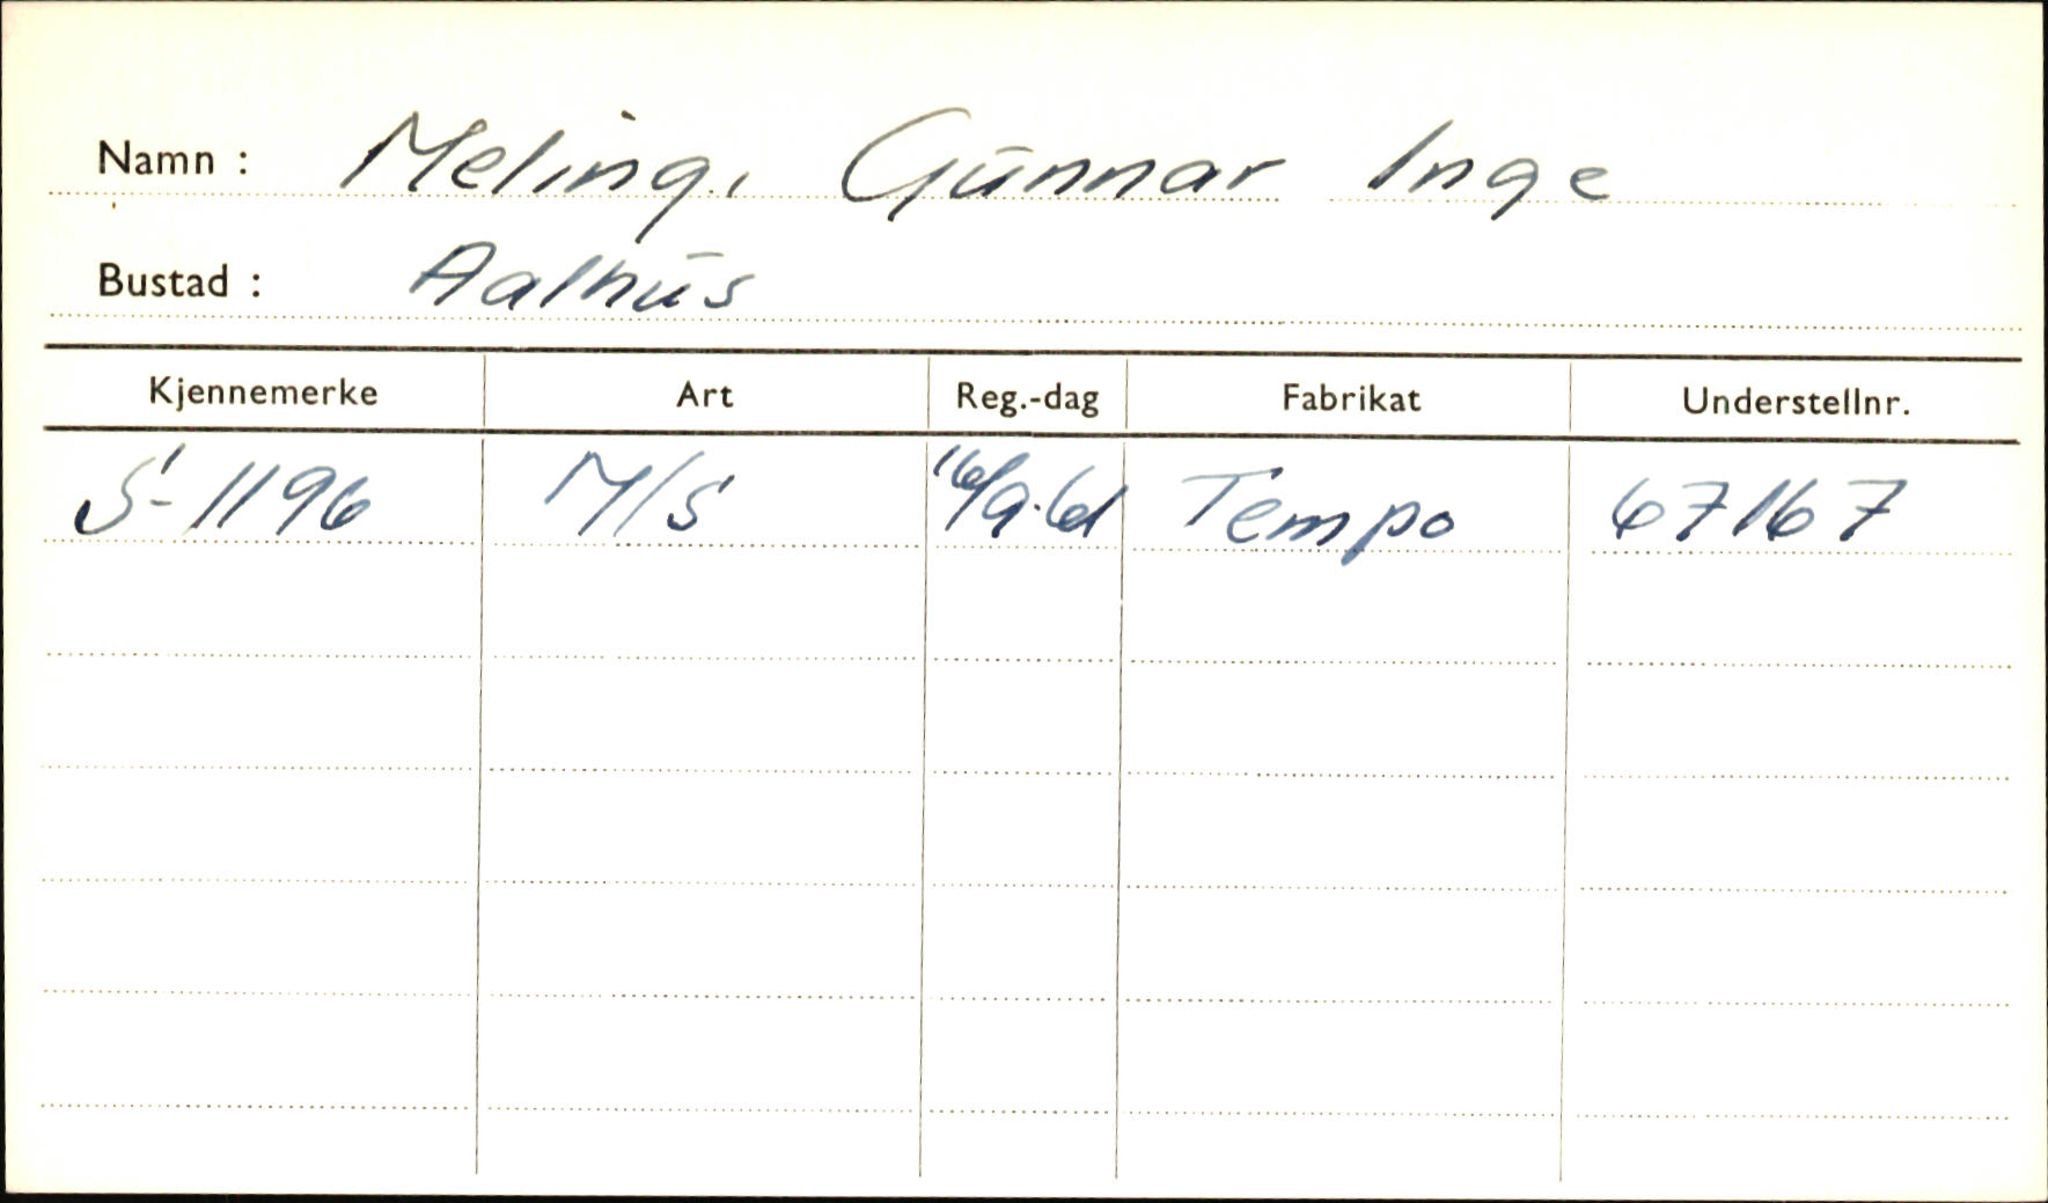 Namn : Meling, Gunnar Inge
Bustad : Aalhus
Kjennemerke Art Reg.-dag Fabrikat Understellnr.
S-1196 M/S 16/9.61 Tempo 67167